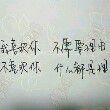 我喜欢你 不需要理由
不喜欢你 什么都是理